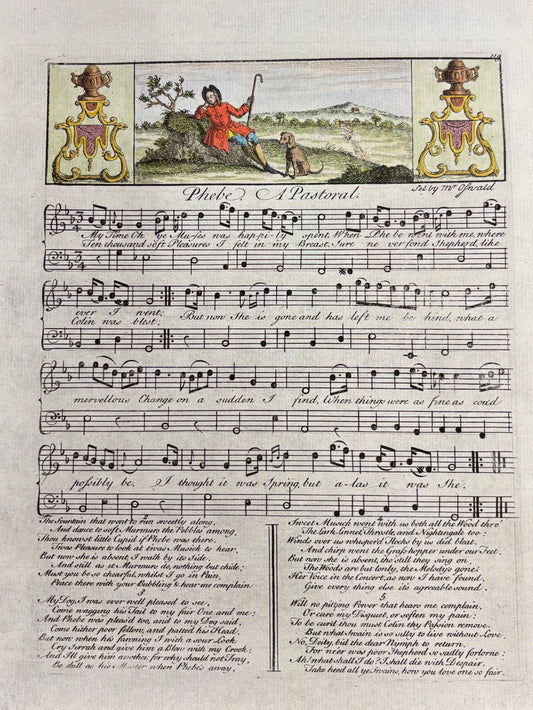 119
Phebe. A Pastoral.
Set by Mr Oswald
My Time Oh ye Mu-ses was hap-pi-ly spent, When Phe be went with me, where
Ten thousand soft Pleasures I felt in my Breast, Sure ne ver fond Shepherd, like
ever I went;
But now She is gone and has left me be hind, what a
Colin was blest;
mervellous Change on a sudden I find, When things were as fine as cou'd
possibly be, I thought it was Spring, but a-las it was She.
2
The Fountain that went to run sweetly along,
And dance to soft Murmurs the Pebbles among,
Thou knowest little Cupid if Phebe was there,
Twas Pleasure to look at twas Musick to hear:
But now she is absent, I walk by its Side,
And still as it Murmurs do, nothing but chide;
Must you be so chearful, whilst I go in Pain,
Peace there with your Bubbling & hear me complain.
3
My Dog, I was ever well pleased to see,
Come wagging his tail to my fair One and me;
And Phebe was pleas'd too, and to my Dog said,
Come hither poor fellow; and patted his Head.
But now when he's fawning I with a sour Look
Cry Sirrah and give him a Blow with my Crook;
And I'll give him another, for why should not Tray,
Be dull as his Master when Phebe's away.
4
Sweet Musick went with us both all the Wood thro'
The Lark, Linnet, Throstle, and Nightingale too:
Winds over us whisper'd, Flocks by us did bleat,
And chirp went the Grass hopper under our Feet.
But now she is absent, tho' still they sing on,
The Woods are but lonely, the Melody's gone:
Her Voice in the Concert, as now I have found,
Gave every thing else its agreeable sound.
5
Will no pitying Power that hears me complain,
Or cure my Disquiet, or soften my pain;
To be cur'd thou must Colin thy Passion remove,
But what Swain is so silly to live without Love
No, Deity, bid the dear Nymph to return,
For ne'er was poor Shepherd so sadly forlorne:
Ah! what shall I do? I shall die with Despair.
Take heed all ye Swains, how you love one so fair.